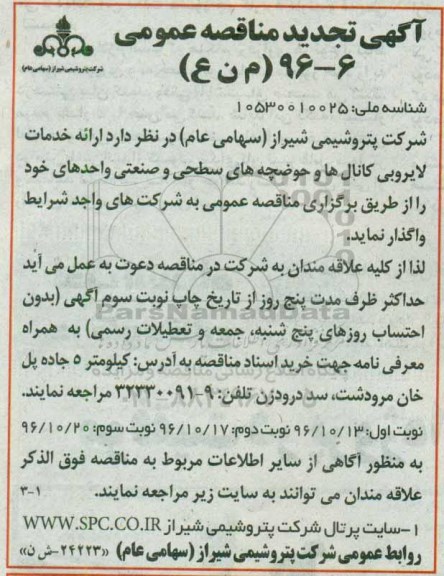 آگهی تجدید مناقصه عمومی
۹۶-۶ (م ن ع)
شرکت پتروشیمی شیراز (سهامی عام)
شناسه ملی: ۱۰۵۳۰۰۱۰۰۲۵
شرکت پتروشیمی شیراز (سهامی عام) در نظر دارد ارائه خدمات
لایروبی کانال ها و حوضچه های سطحی و صنعتی واحدهای خود
را از طریق برگزاری مناقصه عمومی به شرکت های واجد شرایط
واگذار نماید.
لذا از کلیه علاقه مندان به شرکت در مناقصه دعوت به عمل می آید
حداکثر ظرف مدت پنج روز از تاریخ چاپ نوبت سوم آگهی (بدون
احتساب روزهای پنج شنبه، جمعه و تعطیلات رسمی) به همراه
معرفی نامه جهت خرید اسناد مناقصه به آدرس: کیلومتر ۵ جاده پل
خان مرودشت، سد درودزن تلفن: ۹-۳۲۳۳۰۰۹۱ مراجعه نمایند.
نوبت اول: ۹۶/۱۰/۱۳ نوبت دوم: ۹۶/۱۰/۱۷ نوبت سوم: ۹۶/۱۰/۲۰
به منظور آگاهی از سایر اطلاعات مربوط به مناقصه فوق الذکر
علاقه مندان می توانند به سایت زیر مراجعه نمایند. ۳-۱
۱-سایت پرتال شرکت پتروشیمی شیراز WWW.SPC.CO.IR
روابط عمومی شرکت پتروشیمی شیراز (سهامی عام) «۲۴۲۲۳-ش ن»
ParsNamadData